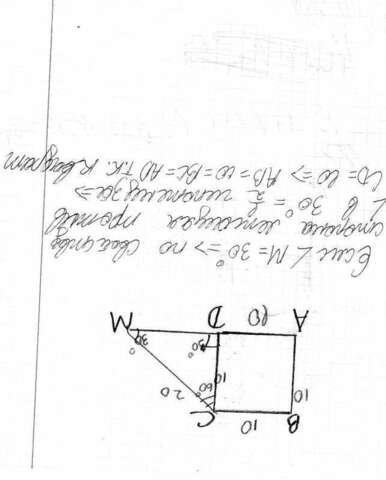 10
B C
10 10 60° 20
90° 30°
A 10 D M
Если ∠ M = 30° => по свойству
сторона лежащая против
∠ в 30° = 1/2 гипотенузы =>
CD = 10 => AB = 10 = BC = AD т.к. квадрат